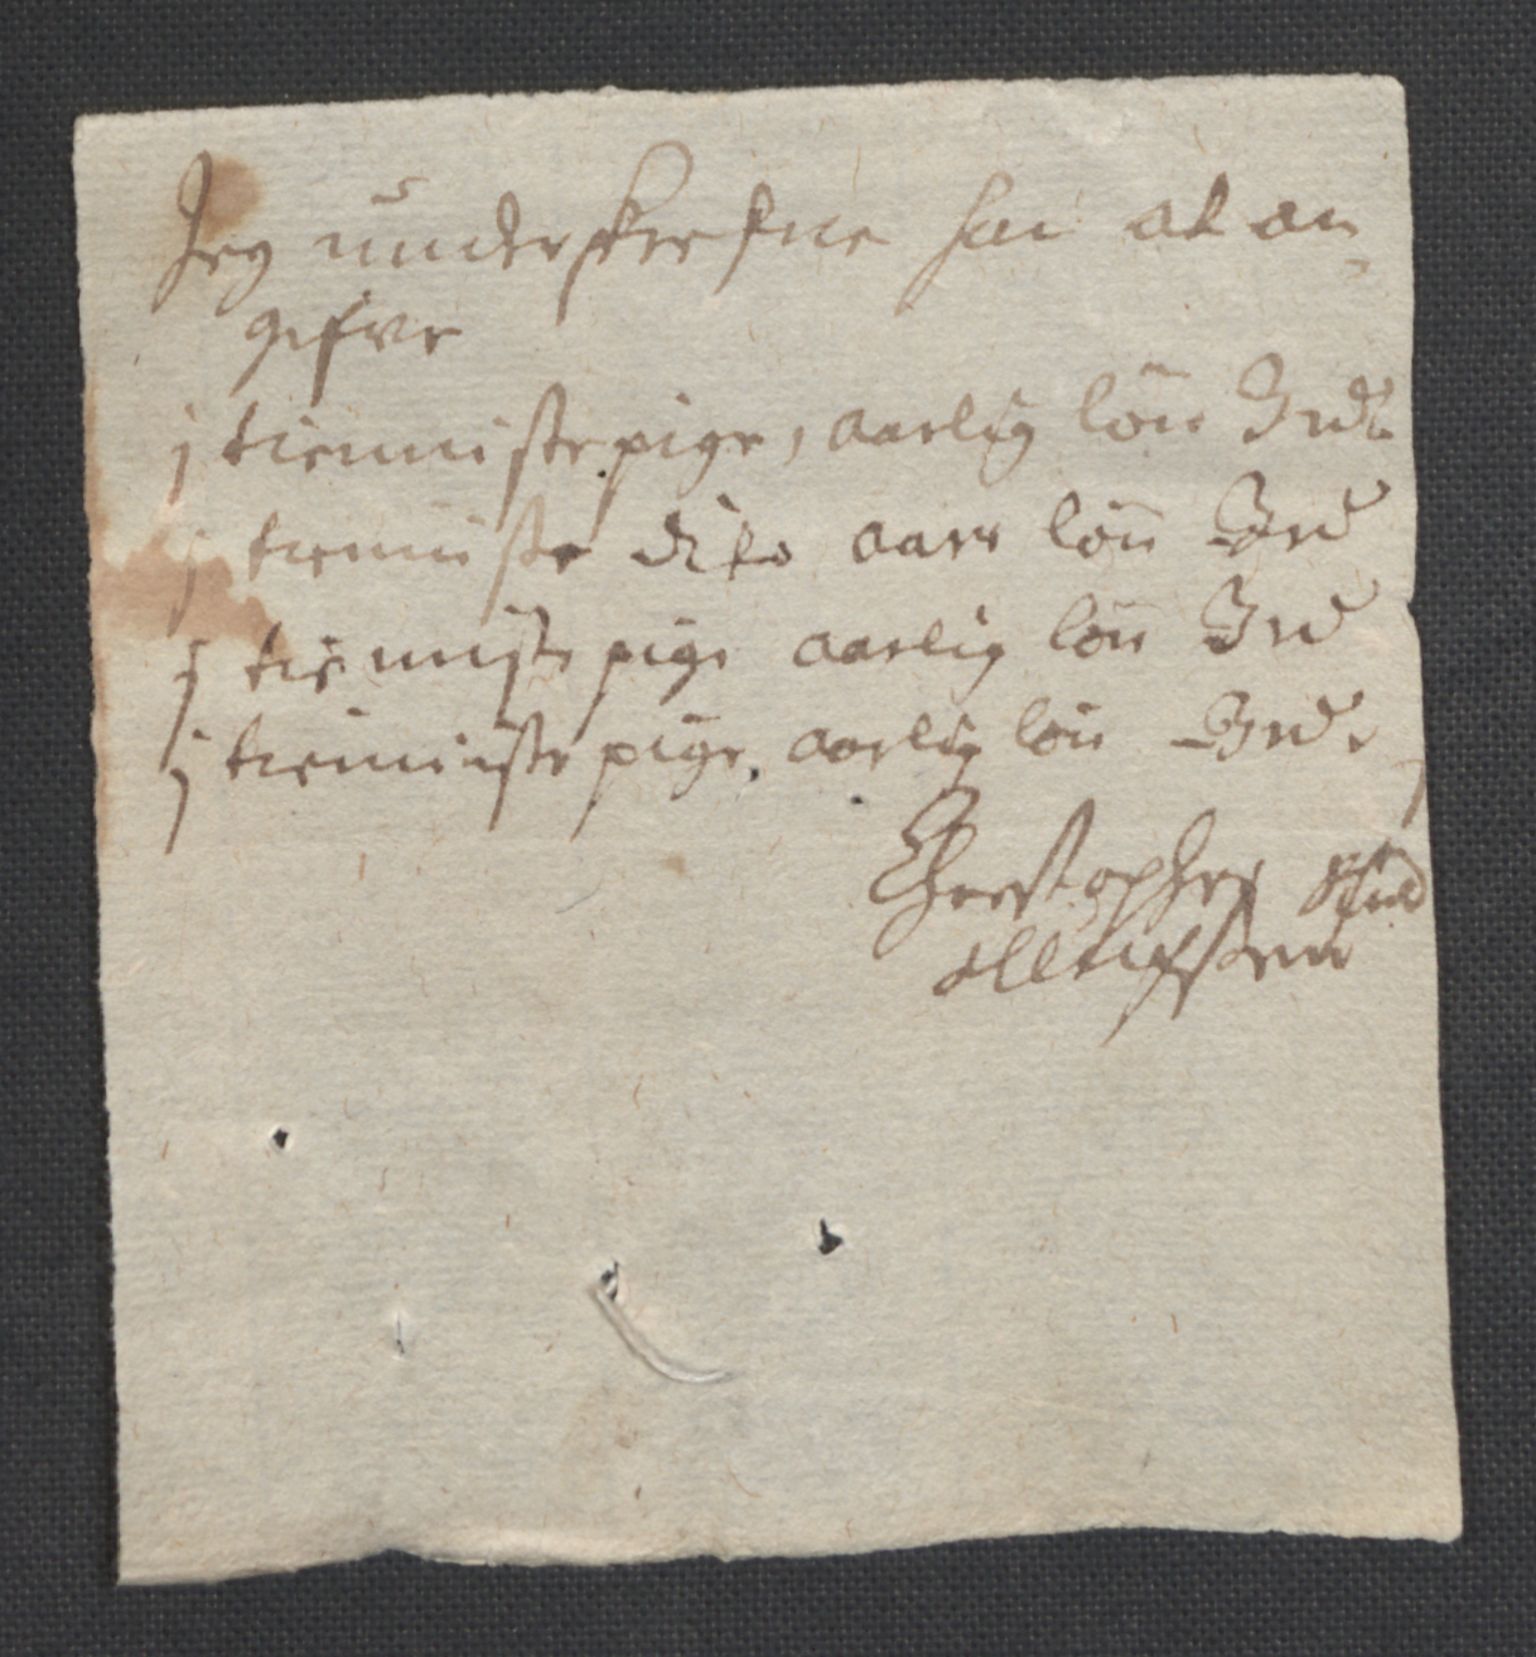 Jeg underskrefne har at an-
gifve
j tienniste pige, aarlig lön 3 rdr
j tienniste dito aars lön 3 rd
j tienniste pige aarlig lön 3 rd
j tienniste pige, aarlig lön 3 rd.
Chrestopher